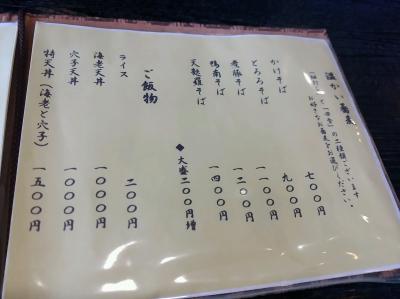 温かい蕎麦
の二種類ございます。
お好きなお蕎麦をお選びください。
かけそば 七〇〇円
とろろそば 九〇〇円
山菜そば 一一〇〇円
鴨南そば 一二〇〇円
天麩羅そば 一四〇〇円
◆大盛二〇〇円増
ご飯物
ライス 二〇〇円
海老天丼 一〇〇〇円
穴子天丼 一〇〇〇円
特天丼（海老と穴子） 一五〇〇円